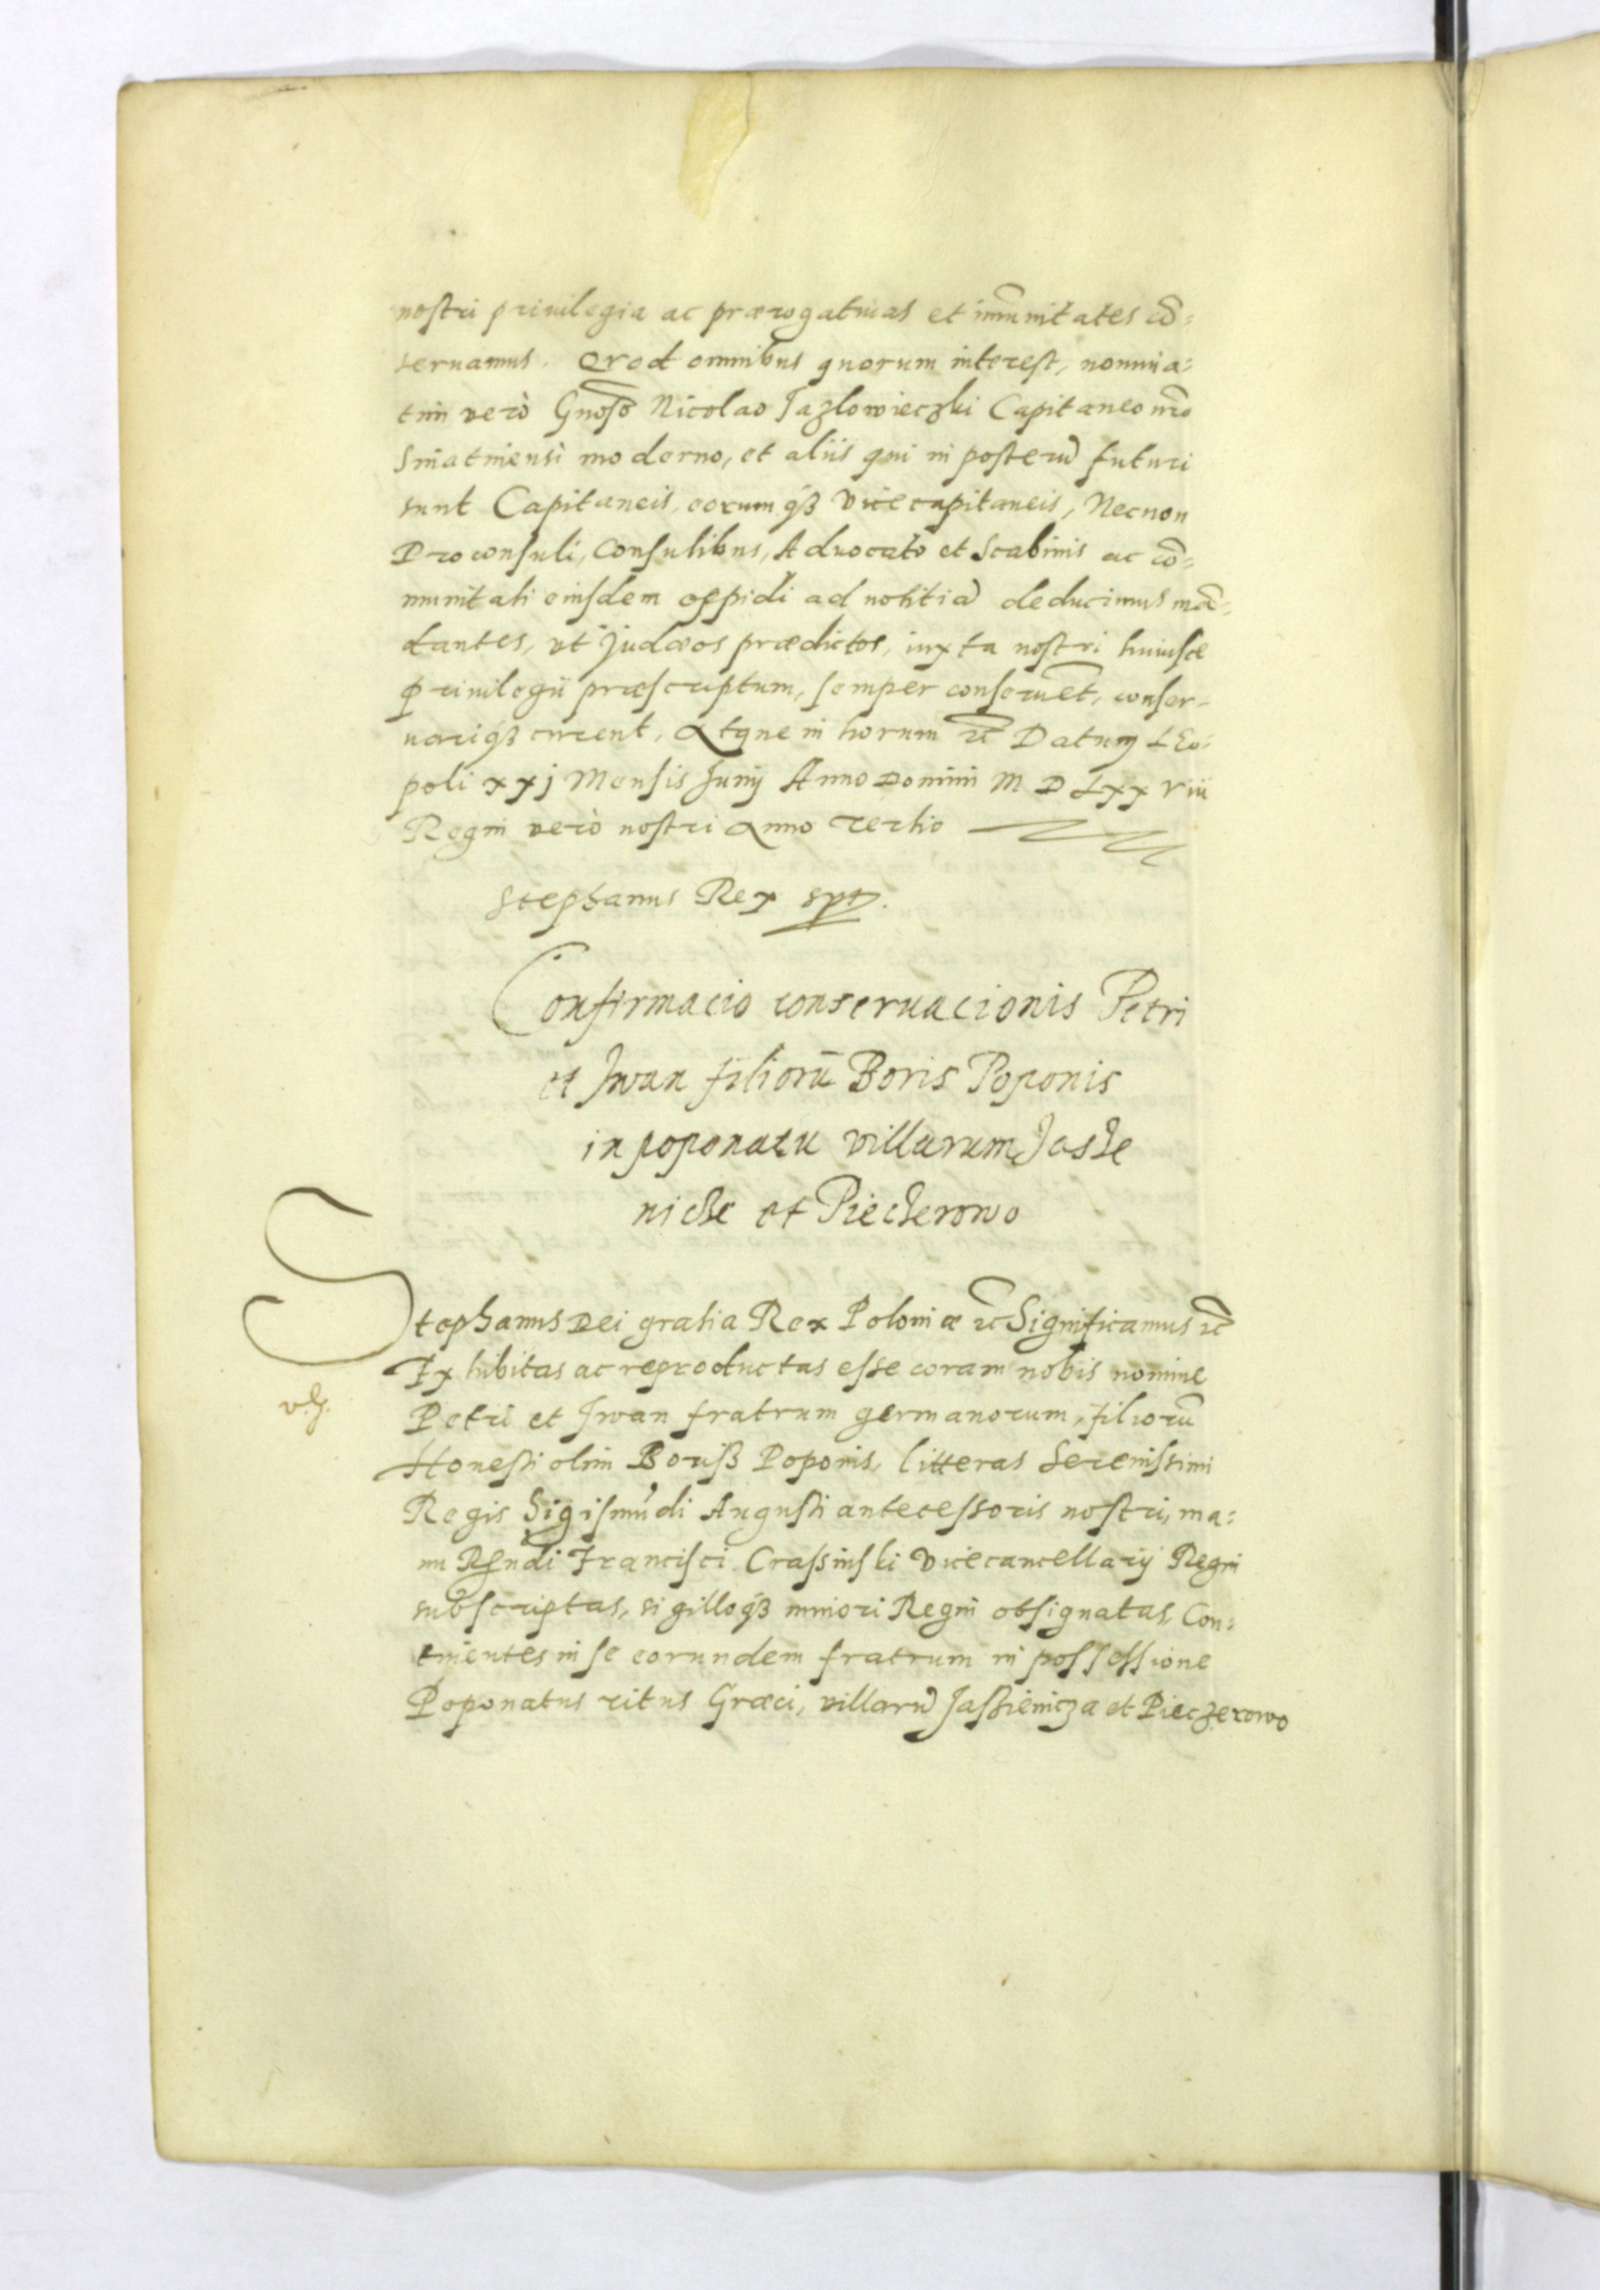 nostri priuilegia ac prærogatiuas et im̃unitates cõ=
seruamus. Quod omnibus quorum interest, nomina=
tim verò Gnoso Nicolao Jazlowieczki Capitaneo nr̃o
Sniatinensi moderno, et aliis qui in posterũ futuri
sunt Capitaneis, eorumqꝫ Vicecapitaneis, Necnon
Proconsuli, Consulibus, Aduocato et Scabinis ac cõ=
munitati eiusdem oppidi ad notitiã deducimus mã=
dantes, vt Judæos prædictos, iuxta nostri huiusce
priuilegii præscriptum, semper conseruẽt, conser-
uariqꝫ curent, Atque in horum ꝛc̃ Datum LEo=
poli xxj Mensis Junij Anno Domini M D Lxx Viii
Regni verò nostri Anno Tertio
Stephanus Rex sspt.
Confirmacio conseruacionis Petri
et Jwan filiorũ Boris Poponis
in poponatu villarum Jasie
nicze et Pieczerowo
Stephanus Dei gratia Rex Poloniæ ꝛc̃ Significamus ꝛc̃
Exhibitas ac reproductas esse coram nobis nomine
Petri et Jwan fratrum germanorum, filiorũ
Honesti olim Boriß Poponis, litteras Serenissimi
Regis Sigismũdi Augusti antecessoris nostri, ma=
nu Rṇdi Francisci Crassinski Vicecancellarij Regni
subscriptas, sigilloqꝫ minori Regni obsignatas, Con=
tinentes in se eorundem fratrum in possessione
Poponatus ritus Græci, villarũ Jassienicza et Pieczerowo